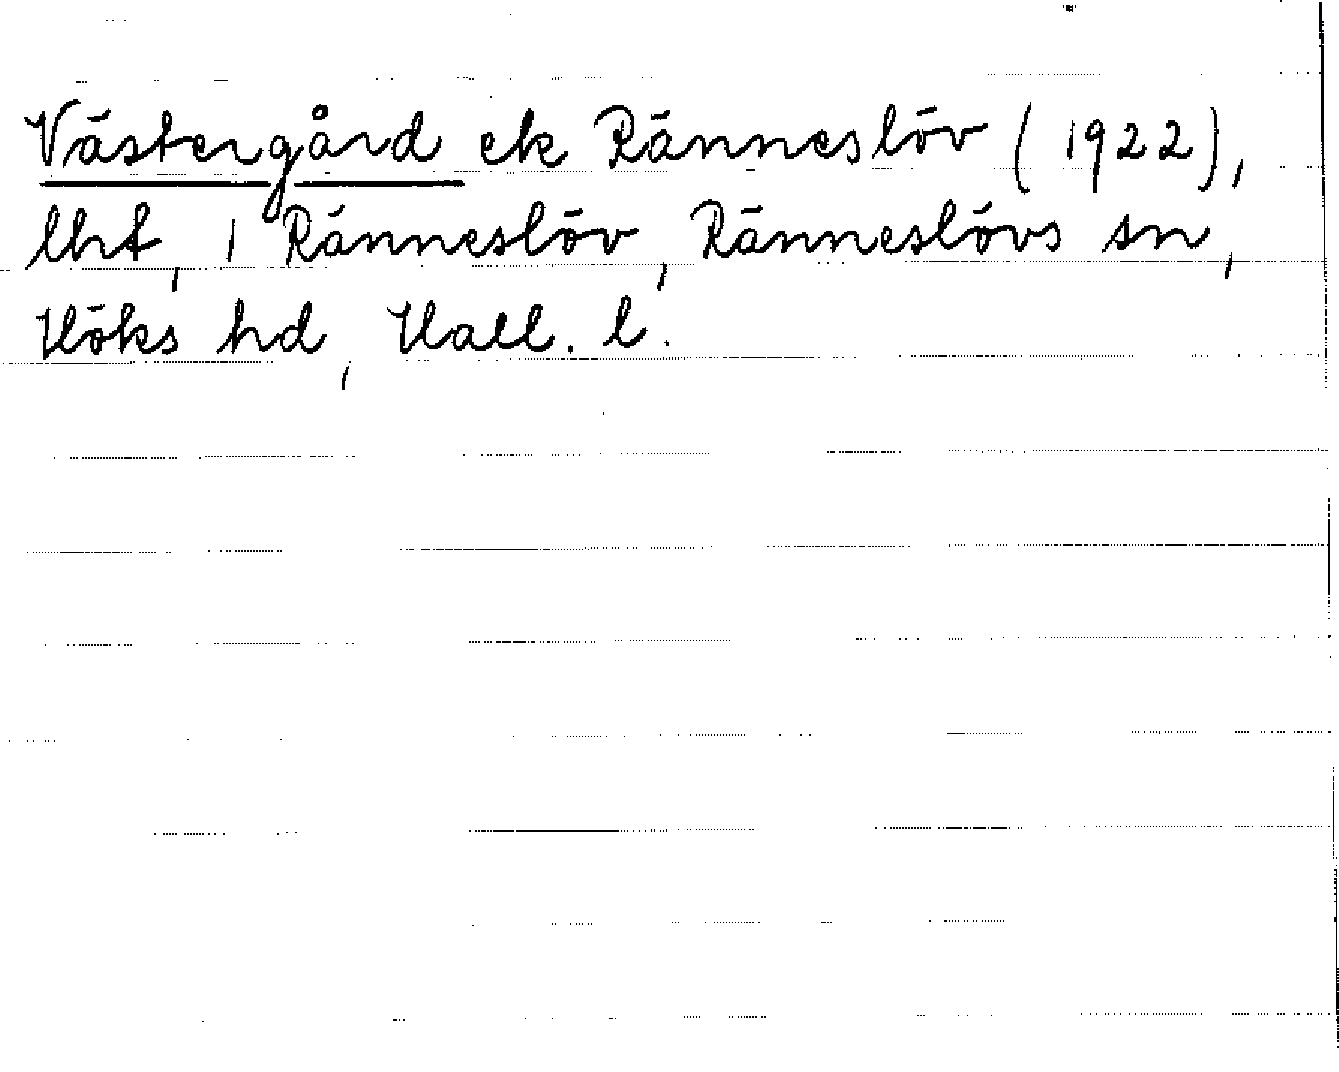 Västergård ek Ränneslöv (1922),
lht, 1 Ränneslöv, Ränneslövs sn,
Höks hd, Hall. l.